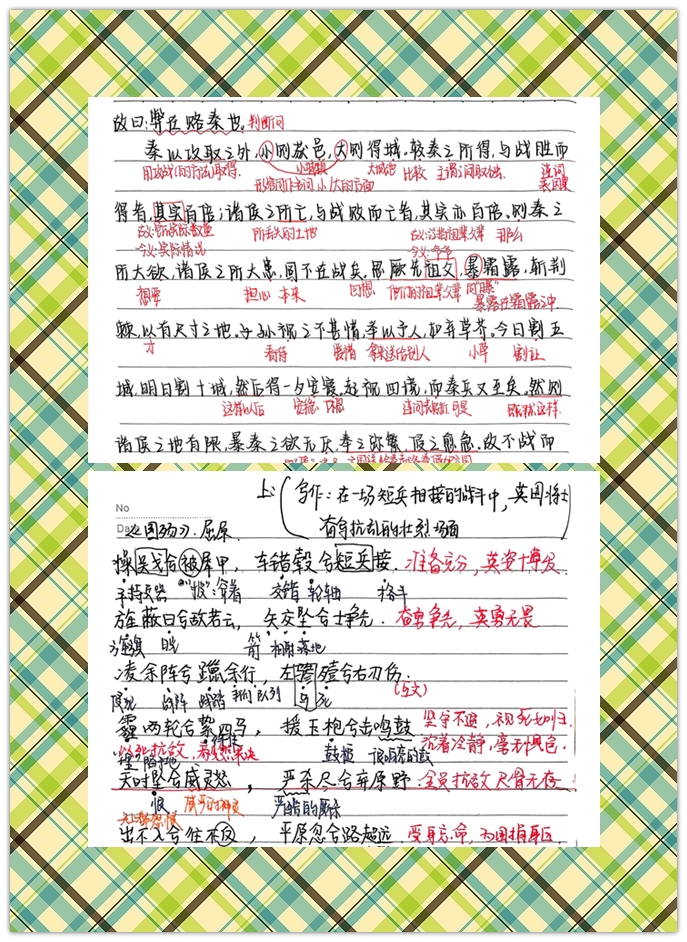 故曰:弊在赂秦也。判断句
秦以攻取之外,小则获邑,大则得城,较秦之所得,与战胜而
用攻战(的方法)取得. 小城镇 大城池 比较 主谓之间取独. 连词
形容词作名词 小/大的方面 表因果
得者,其实百倍;诸侯之所亡,与战败而亡者,其实亦百倍。则秦之
古义:所失去的土地 古义:泛指祖辈父辈 那么
今义:实际情况 今义:爷爷
所大欲,诸侯之所大患,固不在战矣。思厥先祖父,暴霜露,斩荆
想要 担心 本来 回想 他们的祖辈父辈 同"曝"
暴露在霜露之中
棘,以有尺寸之地。子孙视之不甚惜,举以予人,如弃草芥。今日割五
才 看待 爱惜 拿来送给别人 小草 割让
城,明日割十城,然后得一夕安寝。起视四境,而秦兵又至矣。然则
这样以后 安稳 连词表转折 可是 既然这样.
诸侯之地有限,暴秦之欲无厌,奉之弥繁,侵之愈急。故不战而
No
上:(写作:在一场短兵相接的战斗中,英国将士
Da 《国殇》.屈原 奋勇抗敌的壮烈场面
操吴戈兮被犀甲,车错毂兮短兵接.准备充分,英姿十博发.
手持兵器 "披":穿着 交错 轮轴 格斗
旌蔽日兮敌若云,矢交坠兮士争先.奋勇争先,英勇无畏
旗 箭 相射落地
凌余阵兮躐余行,左骖殪兮右刃伤.
侵犯 战阵 践踏 我们队列 死 (互文)
霾两轮兮絷四马,援玉枹兮击鸣鼓 坚守不退,视死如归.
绊住 沉着冷静,毫无惧色.
以死抗敌, 鼓槌 很响亮的鼓
天时坠兮威灵怒,严杀尽兮弃原野.全员抗敌 尸骨无存
恨 威严的神灵
出不入兮往不反,平原忽兮路超远.